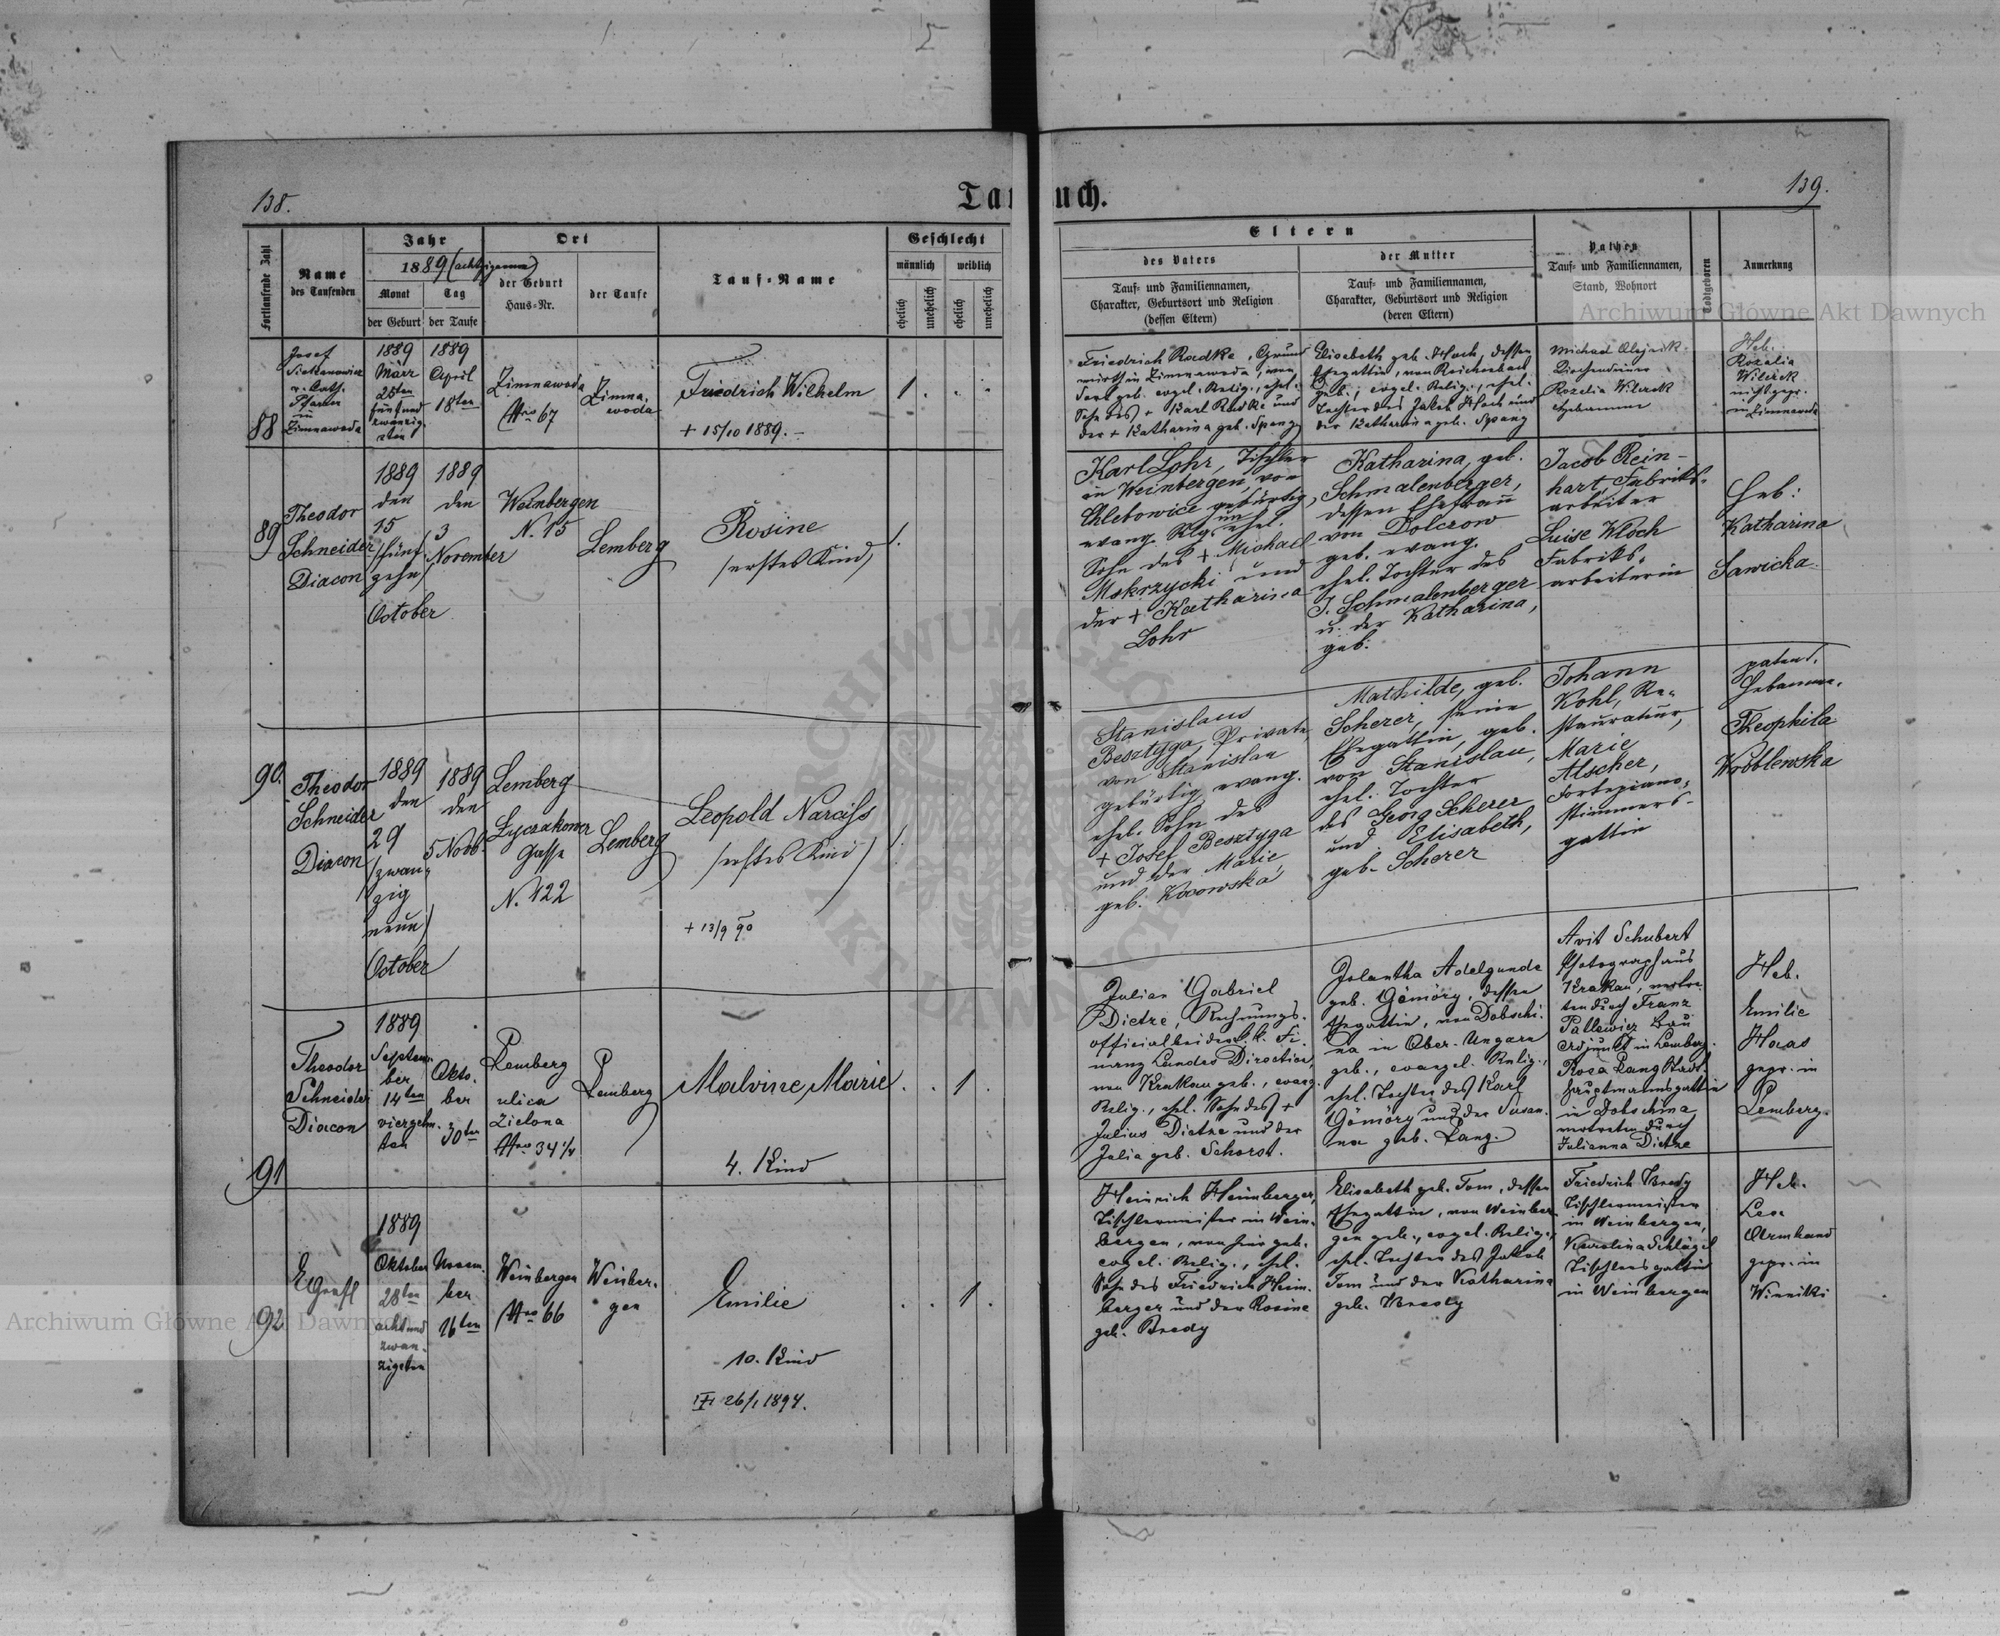 138.
139.
Taufbuch.
Fortlaufende Zahl
Name
des Taufenden
Jahr
1889 (achtzigneun)
Monat
Tag
der Geburt
der Taufe
Ort
der Geburt
Haus-Nr.
der Taufe
Tauf-Name
Geschlecht
männlich
weiblich
ehelich
unehelich
ehelich
unehelich
Eltern
des Vaters
Tauf- und Familiennamen,
Charakter, Geburtsort und Religion
(dessen Eltern)
der Mutter
Tauf- und Familiennamen,
Charakter, Geburtsort und Religion
(deren Eltern)
Pathen
Tauf- und Familiennamen,
Stand, Wohnort
Todtgeboren
Anmerkung
88
Josef
Pfarrer
in
Zimnawoda
1889
März
25ten
fünf und
zwanzig-
sten
1889
April
18ten
Zimnawoda
Nro 67
Zimna-
woda
Friedrich Wilhelm
+ 15/10 1889. -
1
Friedrich Radke, Grund
wirth in Zimnawoda, von
geb. evgel. Relig., ehel.
Sohn des + Karl Radke und
der + Katharina geb. Spang
Elisabeth geb. Hoch, dessen
Ehegattin, von Reichenbach
geb., evgel. Relig., ehel.
Tochter des Jakob Hoch und
der Katharina geb. Spang
Michael Olejnik
Rozalia Wilczek
Hebamme
Heb.
Rozalia
Wilczek
nicht gepr.
in Zimnawoda
89
Theodor
Schneider
Diacon
1889
den
15
(fünf-
zehn)
October
1889
den
3
November
Weinbergen
N. 15
Lemberg
Rosine
(erstes Kind)
1.
Karl Lohr, Tischler
in Weinbergen, von
Chlebowice gebürtig,
evang. Rlg. un ehel.
Sohn des + Michael
Mokrzycki und
der + Katharina
Lohr
Katharina, geb.
Schmalenberger,
dessen Ehefrau
von Dolczow
geb. evang.
ehel. Tochter des
J. Schmalenberger
u. der Katharina,
geb.
Jacob Rein-
hart, Fabriks-
arbeiter
Luise Wloch
Fabriks-
arbeiterin
Heb:
Katharina
Sawicka.
90.
Theodor
Schneider
Diacon
1889
den
29
(zwan-
zig
neun)
October
1889
den
5 Novb.
Lemberg
Łyczakower
Gasse
N. 122
Lemberg
Leopold Narciss
(erstes Kind)
+ 13/9 90
1.
Stanislaus
Besztyga, Private,
von Stanislau
gebürtig, evang.
ehel. Sohn des
+ Josef Besztyga
und der Marie,
geb. Kosowska
Mathilde, geb.
Scherer, seine
Ehegattin, geb.
von Stanislau,
ehel. Tochter
des Georg Scherer
und Elisabeth,
geb. Scherer
Johann
Kohl, Re-
staurateur,
Marie
Alscher,
Fortepiano-
stimmers-
gattin
patent.
Hebamme.
Theophila
Wróblewska
91
Theodor
Schneider
Diacon
1889
Septem-
ber
14ten
vierzehn-
ten
Okto-
ber
30ten
Lemberg
ulica
Zielona
Nro 34 1/4
Lemberg
Malvine Marie
4. Kind
1
Julian Gabriel
Dietze, Rechnungs-
official bei der k.k. Fi-
nanz Landes Direction,
von Krakau geb., evang.
Relig., ehel. Sohn des +
Julius Dietze und der
Julia geb. Schorst.
Jolantha Adelgunde
geb. Gömöry, dessen
Ehegattin, von Dobschi-
na in Ober-Ungarn
geb., evangel. Relig.,
ehel. Tochter des Karl
Gömöry und der Susan-
na geb. Lang.
Avit Schubert
Photograph aus
Krakau, vertre-
ten durch Franz
Pallewicz Bau
adjunkt in Lemberg.
Rosa Lang Stadt-
hauptmannsgattin
in Dobschina
vertreten durch
Julianna Dietze
Heb.
Emilie
Haas
gepr. in
Lemberg.
92
E Grafl
1889
Oktober
28ten
acht und
zwan-
zigsten
Novem-
ber
16ten
Weinbergen
Nro 66
Weinber-
gen
Emilie
10. Kind
26/1 1894.
1
Heinrich Heimberger,
Tischlermeister in Wein-
bergen, von hier geb.
evgel. Relig., ehel.
Sohn des Friedrich Heim-
berger und der Rosine
geb. Bredy
Elisabeth geb. Tom, dessen
Ehegattin, von Weinber-
gen geb., evgel. Relig.,
ehel. Tochter des Jakob
Tom und der Katharina
geb. Bredy
Friedrich Bredy
Tischlermeister
in Weinbergen,
Karolina Schlägel
Tischlersgattin
in Weinbergen
Heb.
Lea
Armhand
gepr. in
Winniki
Archiwum Główne Akt Dawnych
Archiwum Główne Akt Dawnych